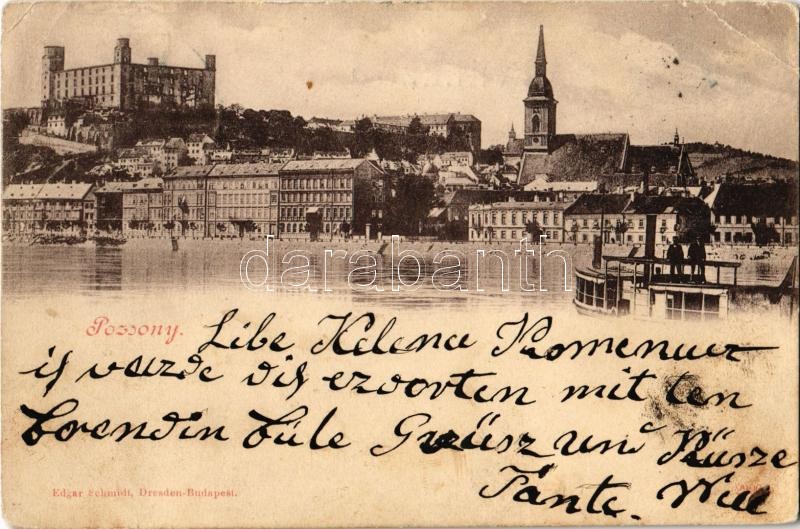 darabanth
Pozsony.
Libe Helena Promenur
ich varde dich ezvorten mit ten
brendin búle Grüsz und Küsze
Tante. Will
Edgar Schmidt, Dresden-Budapest.